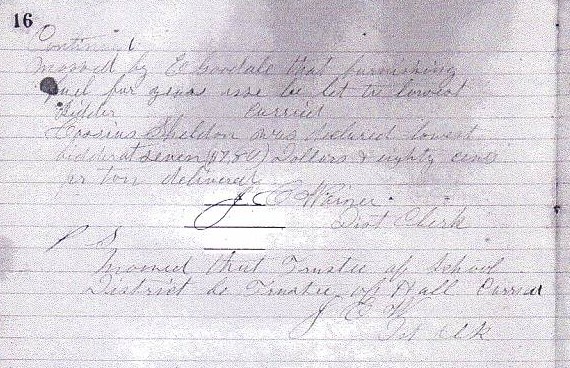 16
Continued
Mooved by E Goodale that furnishing
fuel for years use be let to lowest
Bidder Carried
Cassius Sheldon was declared lowest
bidder at seven ($7.80) Dollars & eighty cents
pr ton delivered
J. E. Warner
Dist Clerk
P S
Mooved that Trustee of School
District be Trustee of Hall Carried
J E W
Dst Clk